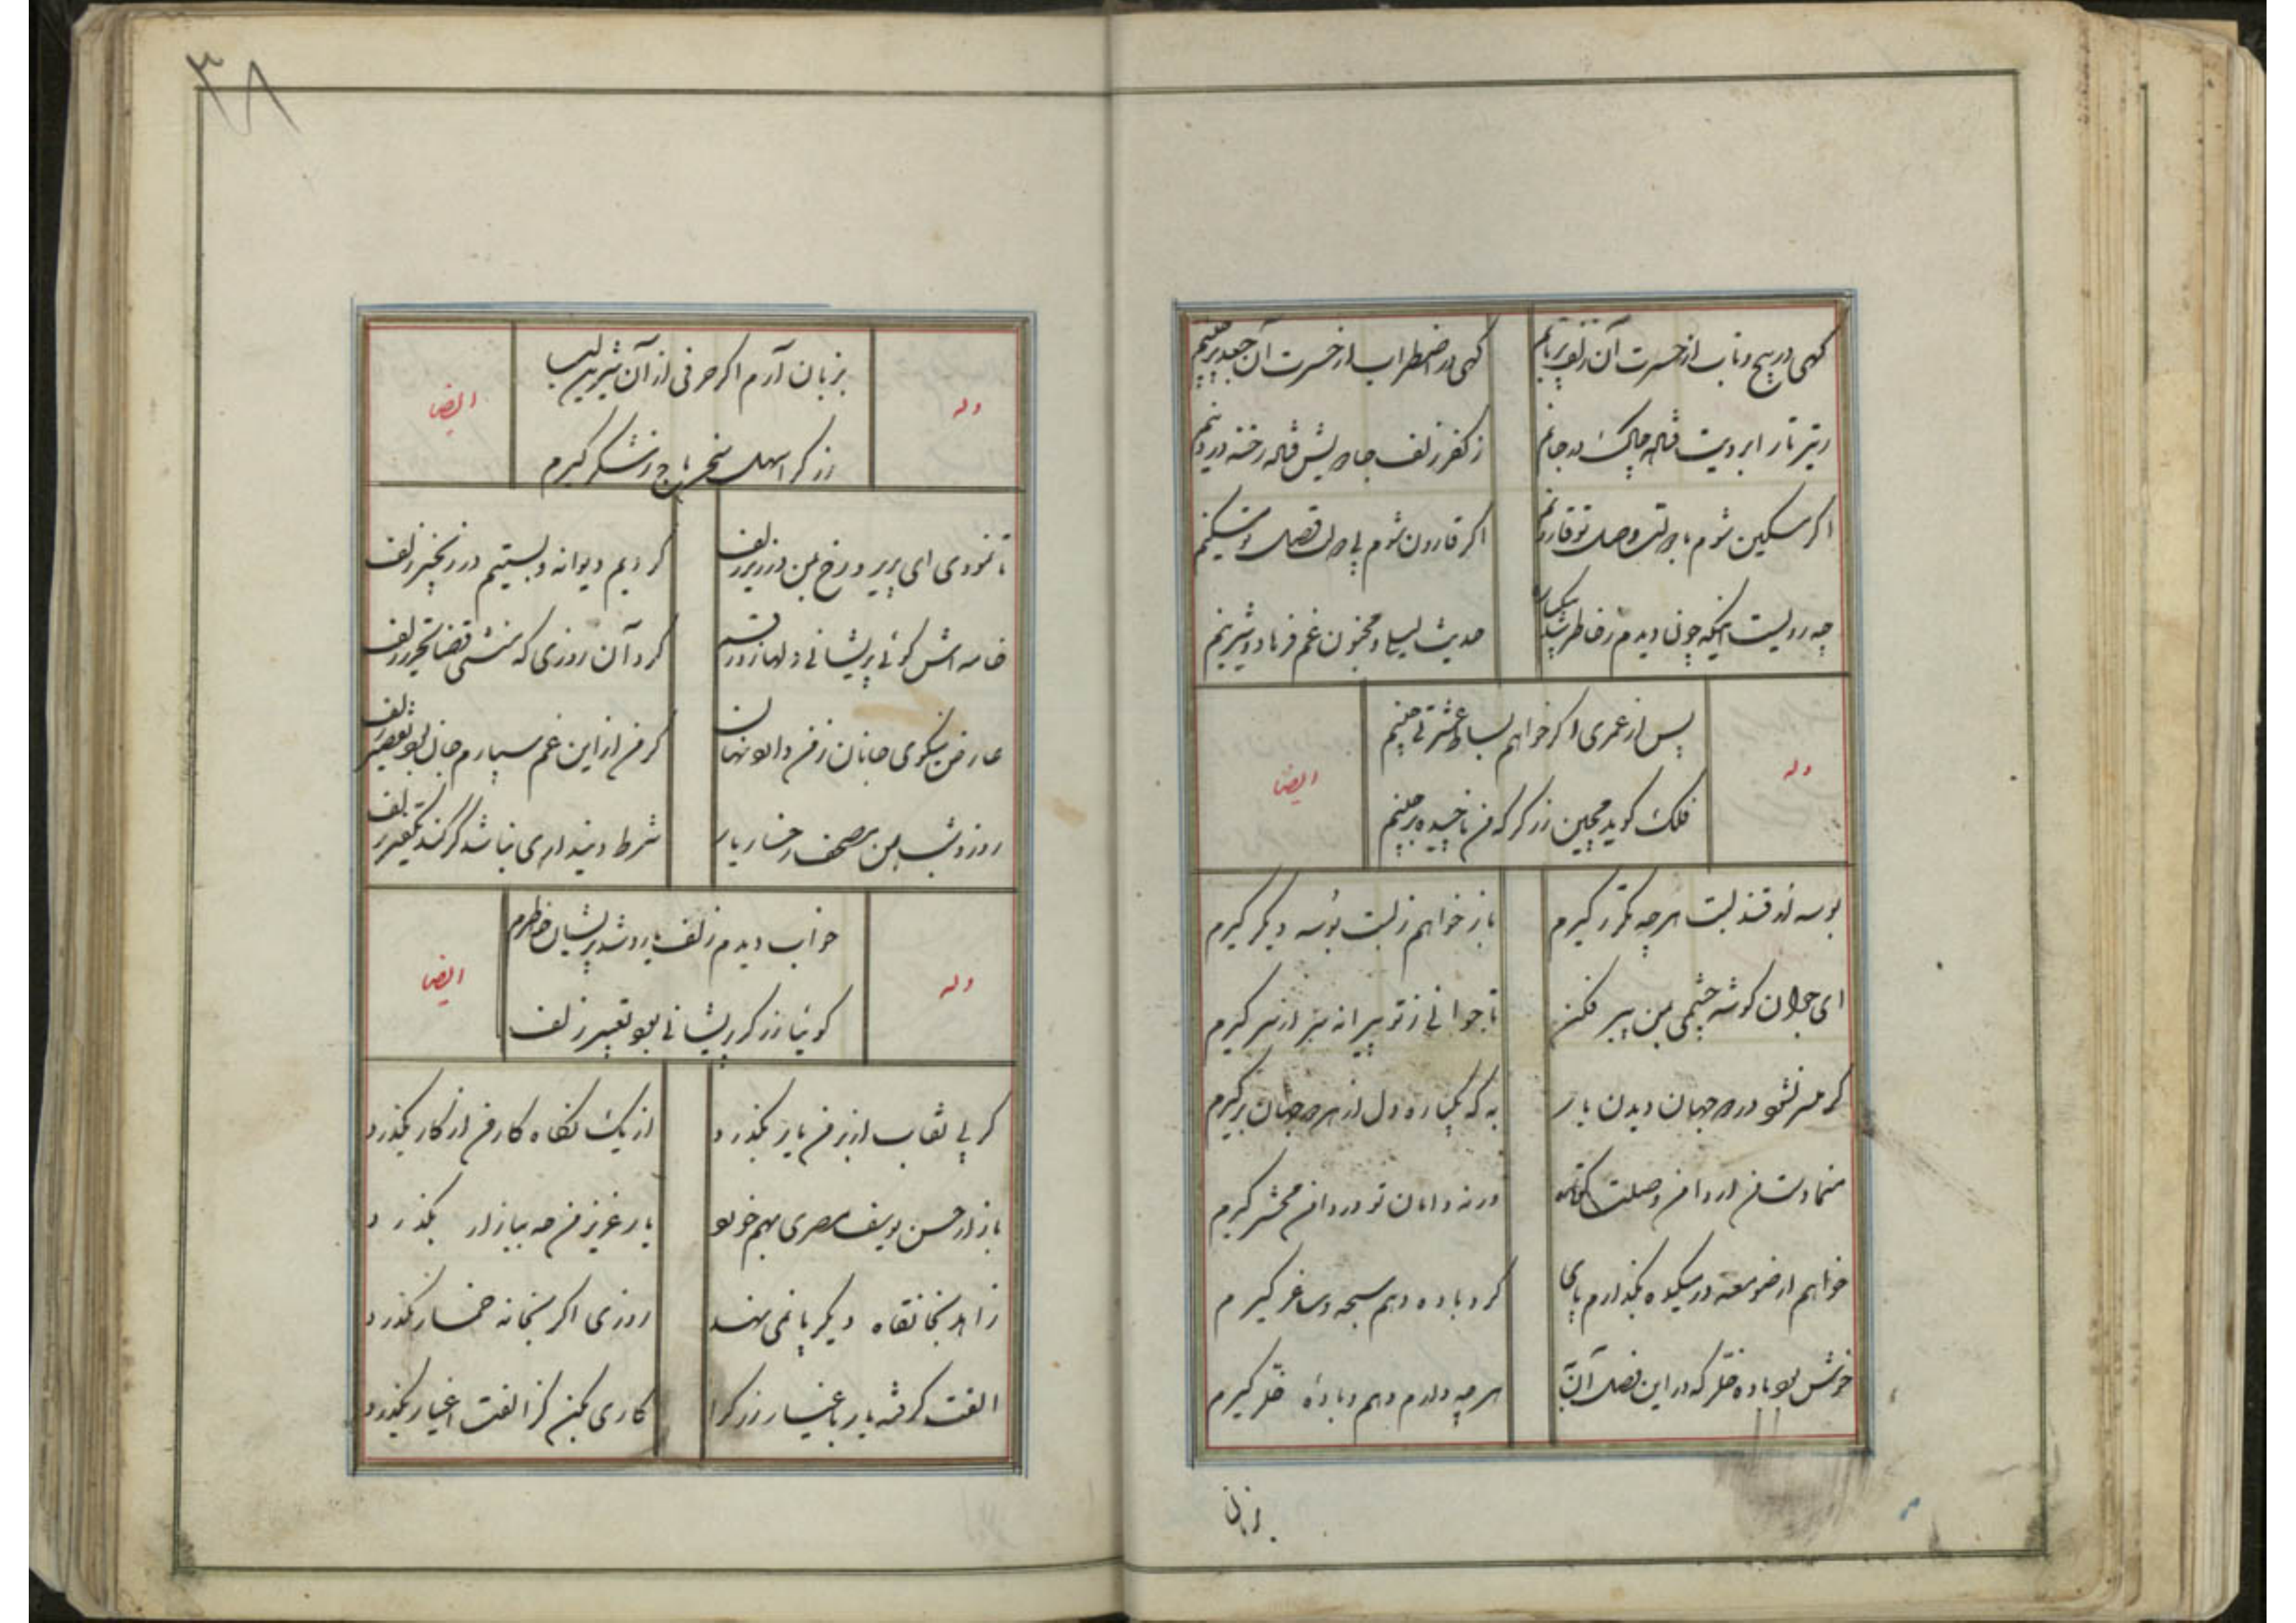 گهی در پیچ و تاب از حسرت آن زلف پرتابم
گهی در اضطراب از حسرت آن جعد پرچینم
ز تیر ناز ابرویت فتاده چاک در جانم
ز کفر زلف جادویش فتاده رخنه در دینم
اگر مسکین شوم با دولت وصل تو قارونم
اگر قارون شوم بی دولت وصلت مسکینم
چه رویست اینکه چون دیدم ز خاطر شد بیکباره
حدیث لیلی و مجنون غم فرهاد و شیرینم
وله
پس از عمری اگر خواهم بساط عشرتی چینم
ایضا
فلک گوید مچین زرگر که من ناچیده برچینم
بوسه از قند لبت هرچه مکرر گیرم
باز خواهم ز لبت بوسه دیگر گیرم
ای جوان گوشه چشمی بمن پیر فکن
تا جوانی ز تو پیرانه سر از سر گیرم
گر میسر نشود در دو جهان دیدن یار
به که یکباره دل از هر دو جهان برگیرم
منما دست من از دامن وصلت کوتاه
ورنه دامان تو در دامن محشر گیرم
خواهم از صومعه در میکده بگذارم پای
گرو باده دهم سبحه و ساغر گیرم
خوش بود باده خلر که در این فصل آن به
هرچه دارم دهم و باده خلر گیرم
بزبان
۳۸
وله
بزبان آرم اگر حرفی از آن شیرین لب
ایضا
زرگر اسهل سخن باج ز شکر گیرم
تا نمودی ای پریرو رخ بمن در زیر زلف
کردیم دیوانه و بستیم در زنجیر زلف
خامه اش گوئی پریشانی دلها زد رقم
کرد آن روزی که منشی قضا تحریر زلف
عارض نیکوی جانان ز من دارد نهان
گر من از این غم سپارم جان بود تقصیر زلف
روز و شب بمن مصحف رخسار یار
شرط دینداری نباشد گر کند تکفیر زلف
وله
خواب دیدم زلف یار و شد پریشان خاطرم
ایضا
گوئیا زرگر پریشانی بود تعبیر زلف
گر بی نقاب از بر من یار بگذرد
از یک نگاه کار من از کار بگذرد
بازار حسن یوسف مصری بهم خورد
یار عزیز من چه ببازار بگذرد
زاهد بخانقاه دیگر پا نمی نهد
روزی اگر بخانه خمار بگذرد
الفت گرفته یار باغیار زرگرا
کاری بکن کز الفت اغیار بگذرد